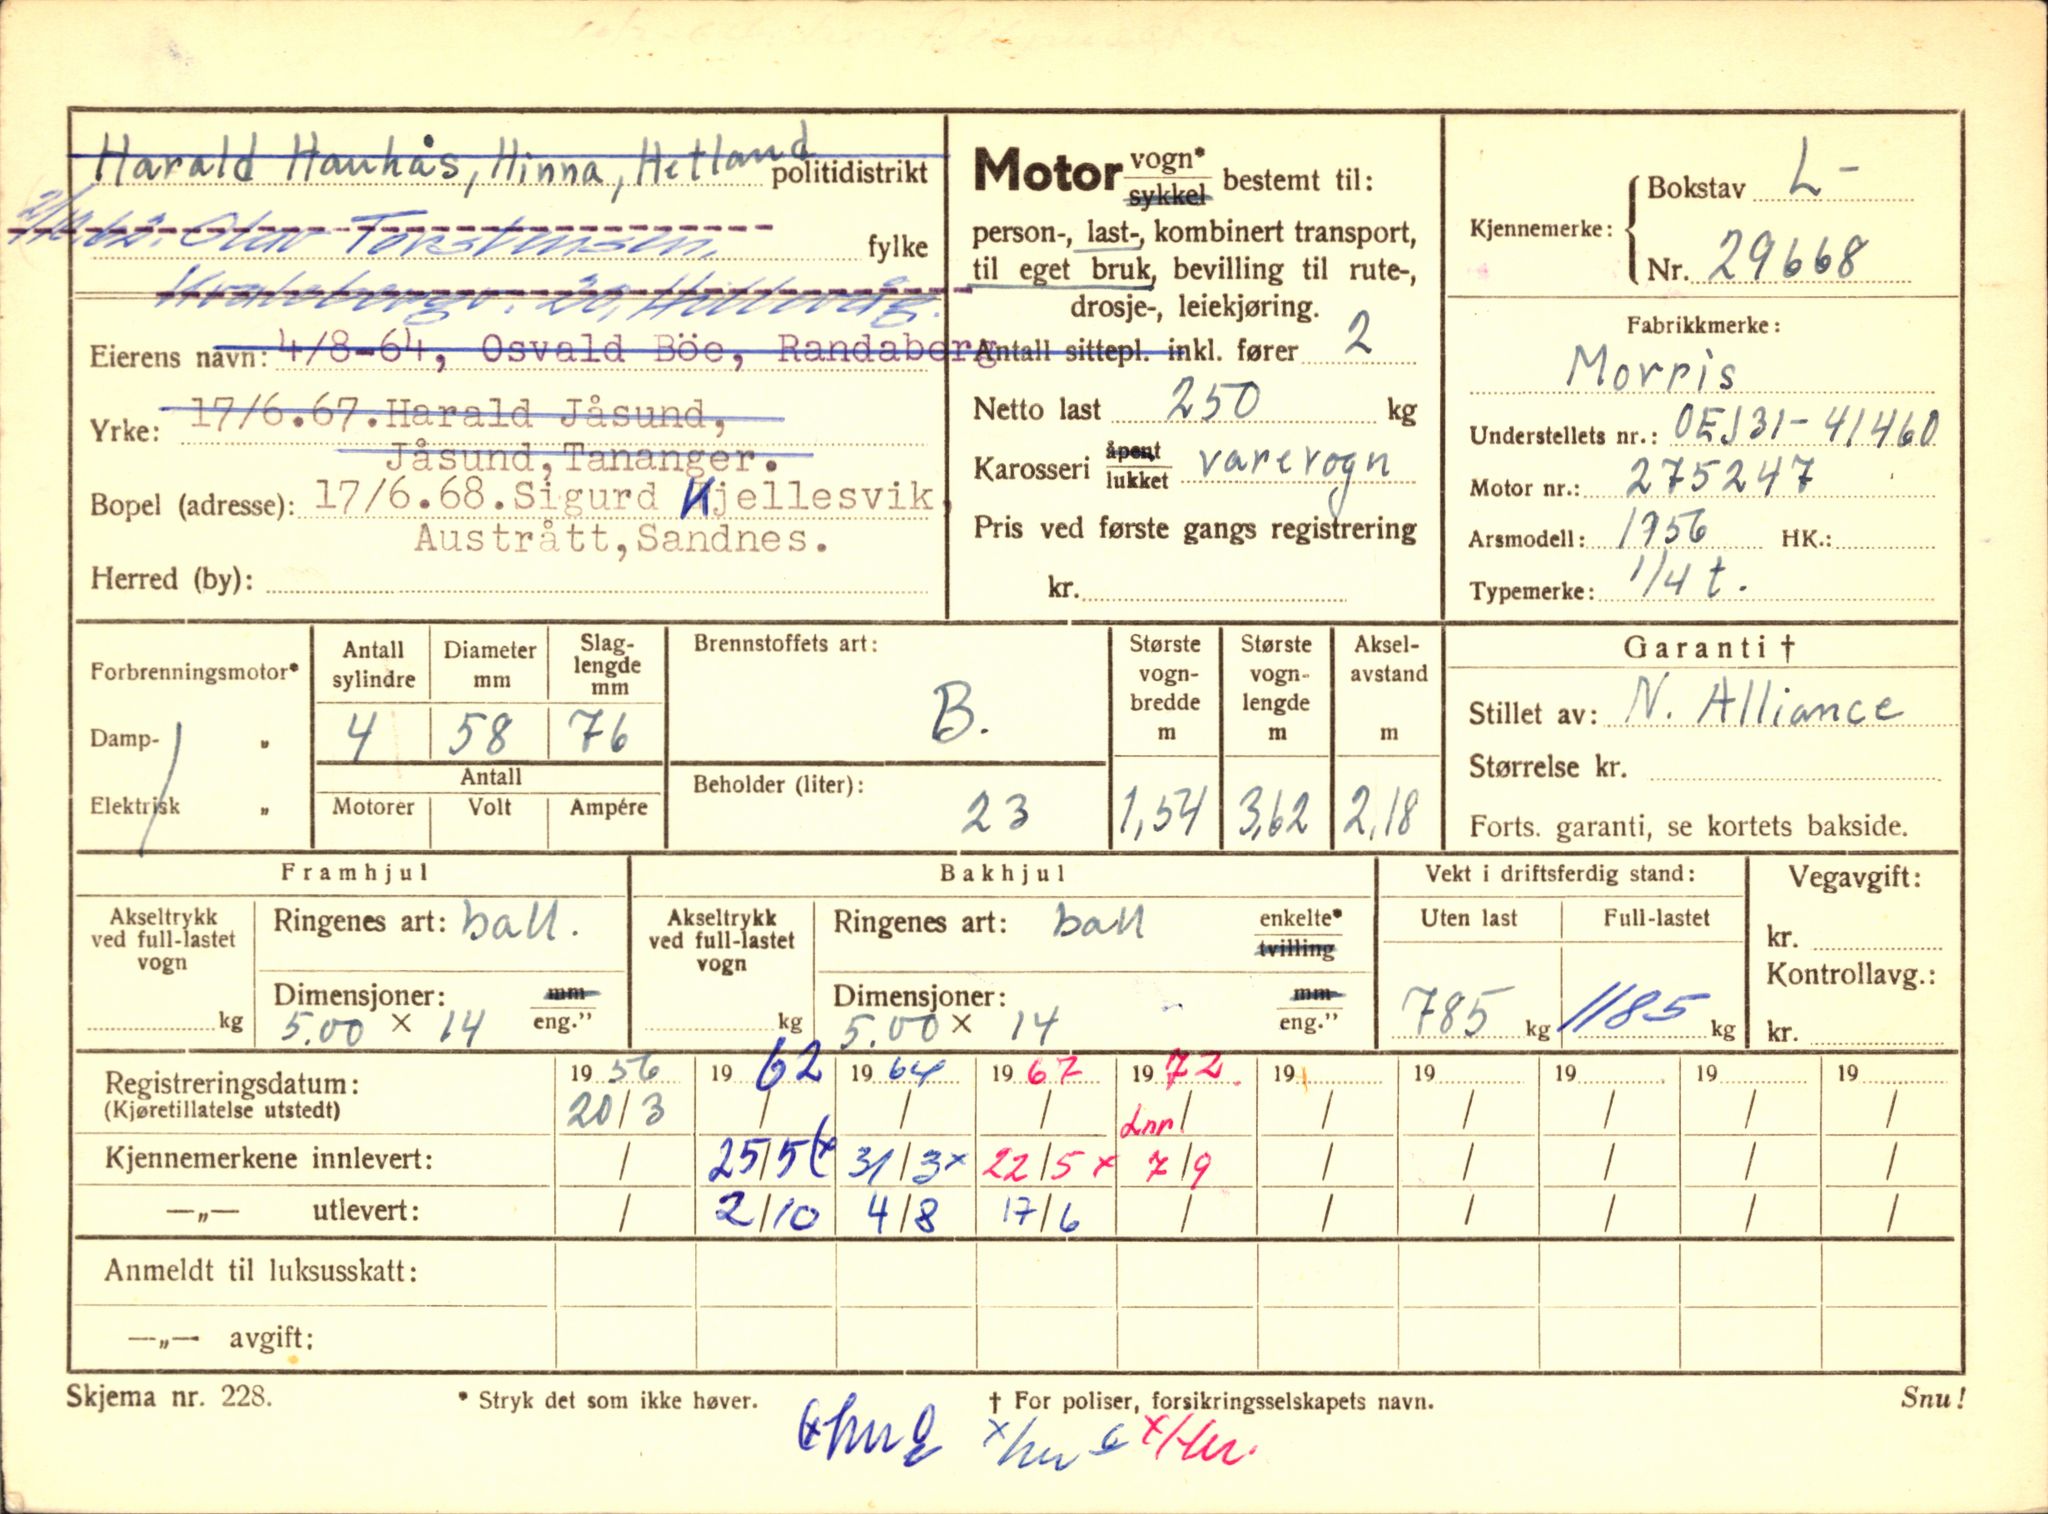 Harald Hauhås, Hinna, Hetland politidistrikt
2/10.62. Olav Torstensen, fylke
20, Hillevåg.
Eierens navn: 4/8-64, Osvald Böe, Randaberg
Yrke: 17/6.67. Harald Jåsund,
Jåsund, Tananger.
Bopel (adresse): 17/6.68. Sigurd Kjellesvik,
Austrått, Sandnes.
Herred (by):
Motor vogn* sykkel bestemt til:
person-, last-, kombinert transport,
til eget bruk, bevilling til rute-,
drosje-, leiekjøring.
Antall sittepl. inkl. fører 2
Netto last 250 kg
Karosseri åpent lukket varevogn
Pris ved første gangs registrering
kr.
Kjennemerke: Bokstav L-
Nr. 29668
Fabrikkmerke:
Morris
Understellets nr.: OEJ31-41460
Motor nr.: 275247
Arsmodell: 1956 HK.:
Typemerke: 1/4 t.
Forbrenningsmotor*
Damp- „
Elektrisk „
Antall sylindre 4
Diameter mm 58
Slag-lengde mm 76
Antall
Motorer Volt Ampére
Brennstoffets art:
B.
Beholder (liter):
23
Største vogn-bredde m 1,54
Største vogn-lengde m 3,62
Aksel-avstand m 2,18
Garanti †
Stillet av: N. Alliance
Størrelse kr.
Forts. garanti, se kortets bakside.
Framhjul
Akseltrykk ved full-lastet vogn
kg
Ringenes art: ball.
Dimensjoner: mm
5.00 × 14 eng."
Bakhjul
Akseltrykk ved full-lastet vogn
kg
Ringenes art: ball enkelte* tvilling
Dimensjoner: mm
5.00 × 14 eng."
Vekt i driftsferdig stand:
Uten last Full-lastet
785 kg 1185 kg
Vegavgift:
kr.
Kontrollavg.:
kr.
Registreringsdatum: 19 56 19 62 19 64 19 67 19 72. 19 19 19 19 19
(Kjøretillatelse utstedt) 20/3 / / / Lnr / / / / / /
Kjennemerkene innlevert: / 25/5 (x 31/3 x 22/5 x 7/9 / / / / /
—„— utlevert: / 2/10 4/8 17/6 / / / / / /
Anmeldt til luksusskatt:
—„— avgift:
Skjema nr. 228. * Stryk det som ikke høver. † For poliser, forsikringsselskapets navn. Snu!